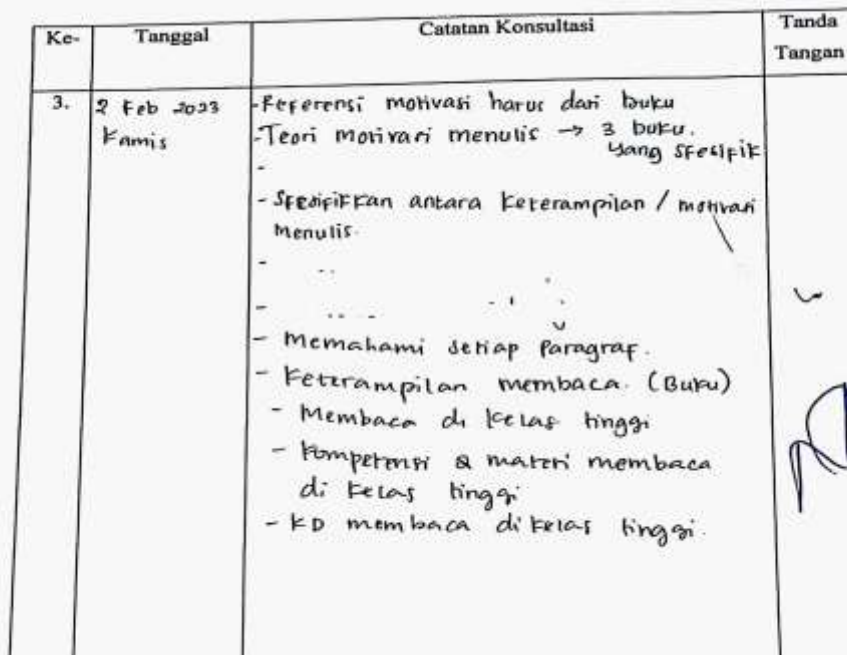 Ke- Tanggal Catatan Konsultasi Tanda Tangan
3. 2 Feb 2023
Kamis
-Referensi motivasi harus dari buku
-Teori motivasi menulis → 3 buku.
yang spesifik
-
- Spesifikkan antara keterampilan / motivasi
menulis.
-
-
- Memahami setiap Paragraf.
- Keterampilan membaca. (Buku)
- Membaca di kelas tinggi
- Kompetensi & materi membaca
di kelas tinggi
- KD membaca di kelas tinggi.